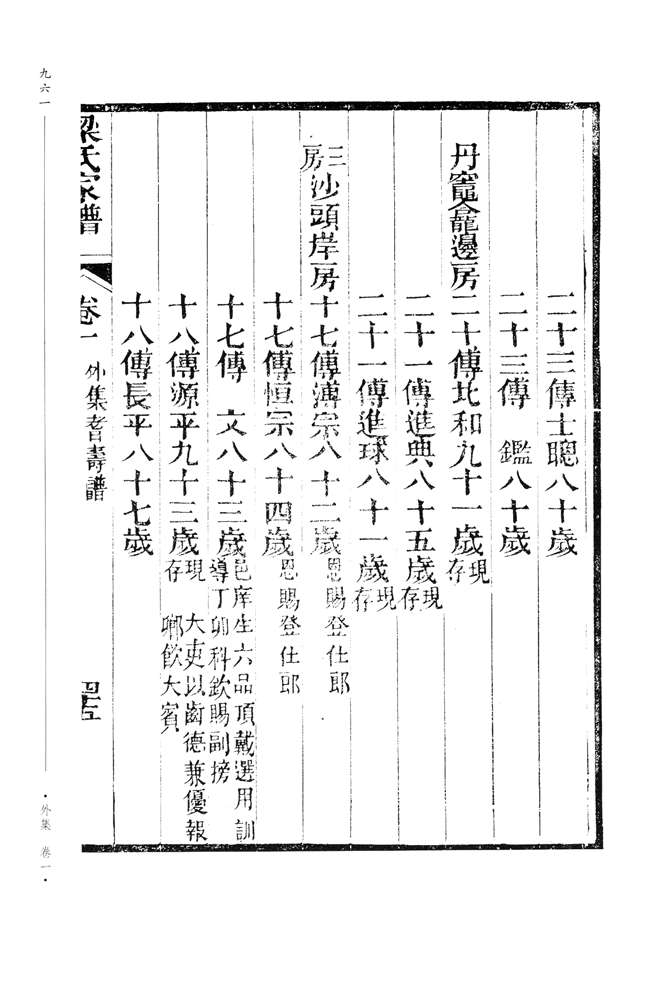 二十三傳士聰八十歲
二十三傳　鑑八十歲
丹竈龕邊房二十傳北和九十一歲現存
二十一傳進典八十五歲現存
二十一傳進球八十一歲現存
三房沙頭岸房十七傳溥宗八十二歲恩賜登仕郎
十七傳恒宗八十四歲恩賜登仕郎
十七傳　文八十三歲邑庠生六品頂戴選用訓導丁卯科欽賜副榜
十八傳源平九十三歲現存　大吏以齒德兼優報鄉飲大賓
十八傳長平八十七歲
梁氏家譜　卷一　外集耆壽譜　四十五
九六一
·外集　卷一·